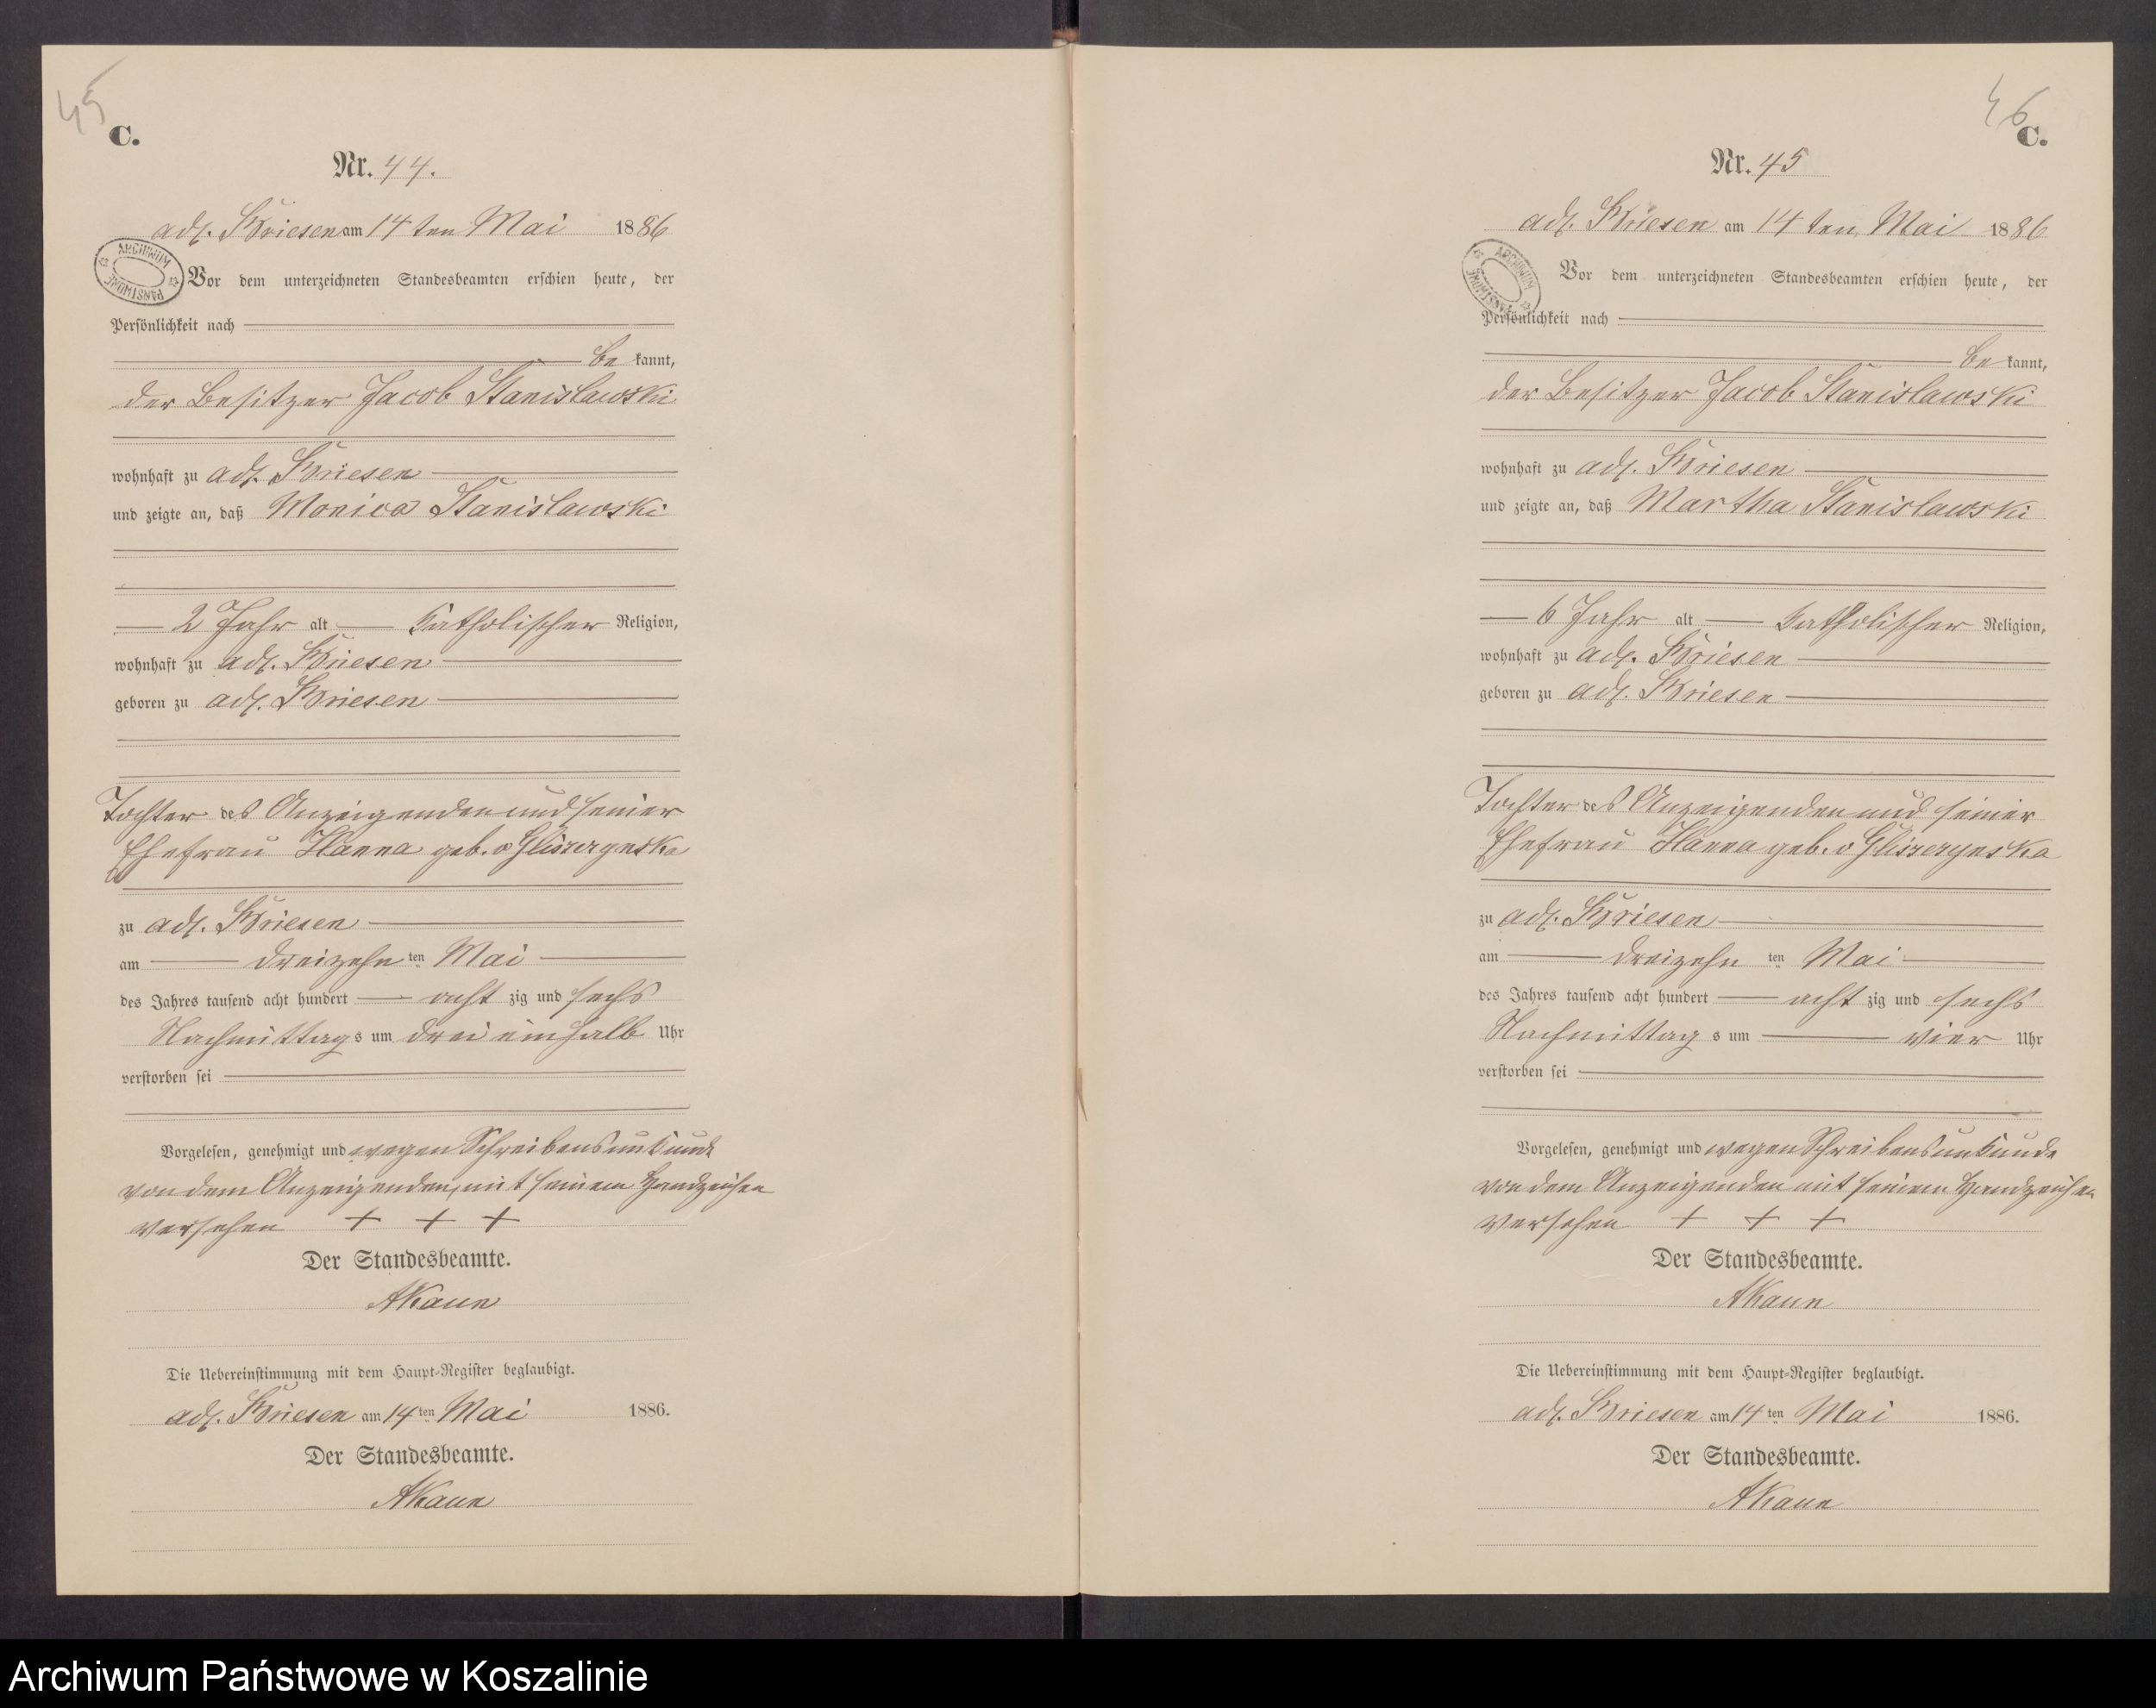 45
C.
Nr. 44.
adl. Briesen am 14 ten Mai 1886
ARCHIWUM PAŃSTWOWE
Vor dem unterzeichneten Standesbeamten erschien heute, der
Persönlichkeit nach
be kannt,
der Besitzer Jacob Stanislawski
wohnhaft zu adl. Briesen
und zeigte an, daß Monica Stanislawski
2 Jahr alt katholischer Religion,
wohnhaft zu adl. Briesen
geboren zu adl. Briesen
Tochter des Anzeigenden und seiner
Ehefrau Hanna geb. v
zu adl. Briesen
am dreizehn ten Mai
des Jahres tausend acht hundert acht zig und sechs
Nachmittags um drei einhalb Uhr
verstorben sei
Vorgelesen, genehmigt und wegen Schreibensunkunde
von dem Anzeigenden mit seinem Handzeichen
versehen + + +
Der Standesbeamte.
Die Uebereinstimmung mit dem Haupt-Register beglaubigt.
adl. Briesen am 14 ten Mai 1886.
Der Standesbeamte.
46
C.
Nr. 45
adl. Briesen am 14 ten Mai 1886
ARCHIWUM PAŃSTWOWE
Vor dem unterzeichneten Standesbeamten erschien heute, der
Persönlichkeit nach
be kannt,
der Besitzer Jacob Stanislawski
wohnhaft zu adl. Briesen
und zeigte an, daß Martha Stanislawski
6 Jahr alt katholischer Religion,
wohnhaft zu adl. Briesen
geboren zu adl. Briesen
Tochter des Anzeigenden und seiner
Ehefrau Hanna geb. v
zu adl. Briesen
am dreizehn ten Mai
des Jahres tausend acht hundert acht zig und sechs
Nachmittags um vier Uhr
verstorben sei
Vorgelesen, genehmigt und wegen Schreibensunkunde
von dem Anzeigenden mit seinem Handzeichen
versehen + + +
Der Standesbeamte.
Die Uebereinstimmung mit dem Haupt-Register beglaubigt.
adl. Briesen am 14 ten Mai 1886.
Der Standesbeamte.
Archiwum Państwowe w Koszalinie